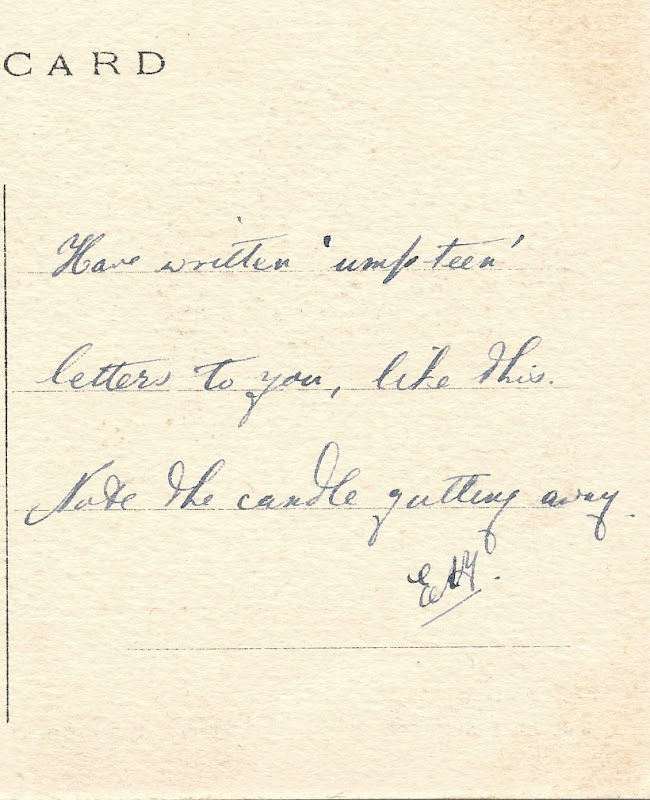 CARD
Have written 'umpteen'
letters to you, like this.
Note the candle gutting away.